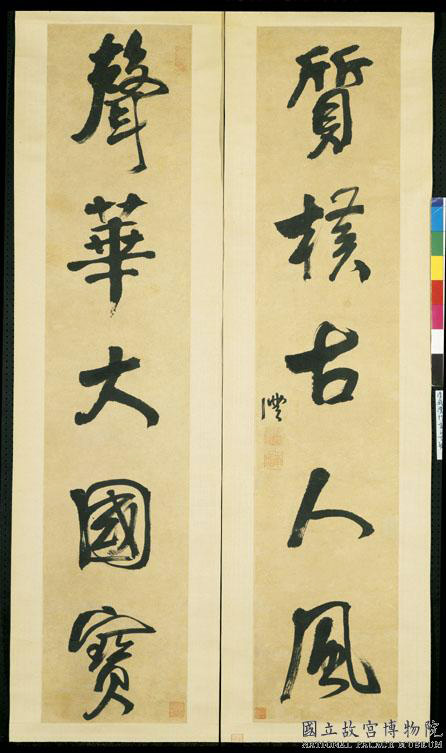 質樸古人風
澧
聲華大國寶
國立故宮博物院
NATIONAL PALACE MUSEUM